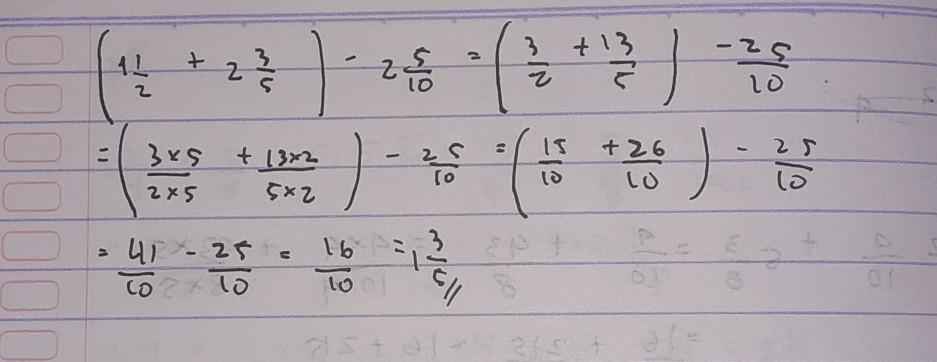 (1 1/2 + 2 3/5) - 2 5/10 = (3/2 + 13/5) - 25/10
= (3×5/2×5 + 13×2/5×2) - 25/10 = (15/10 + 26/10) - 25/10
= 41/10 - 25/10 = 16/10 = 1 3/5 //